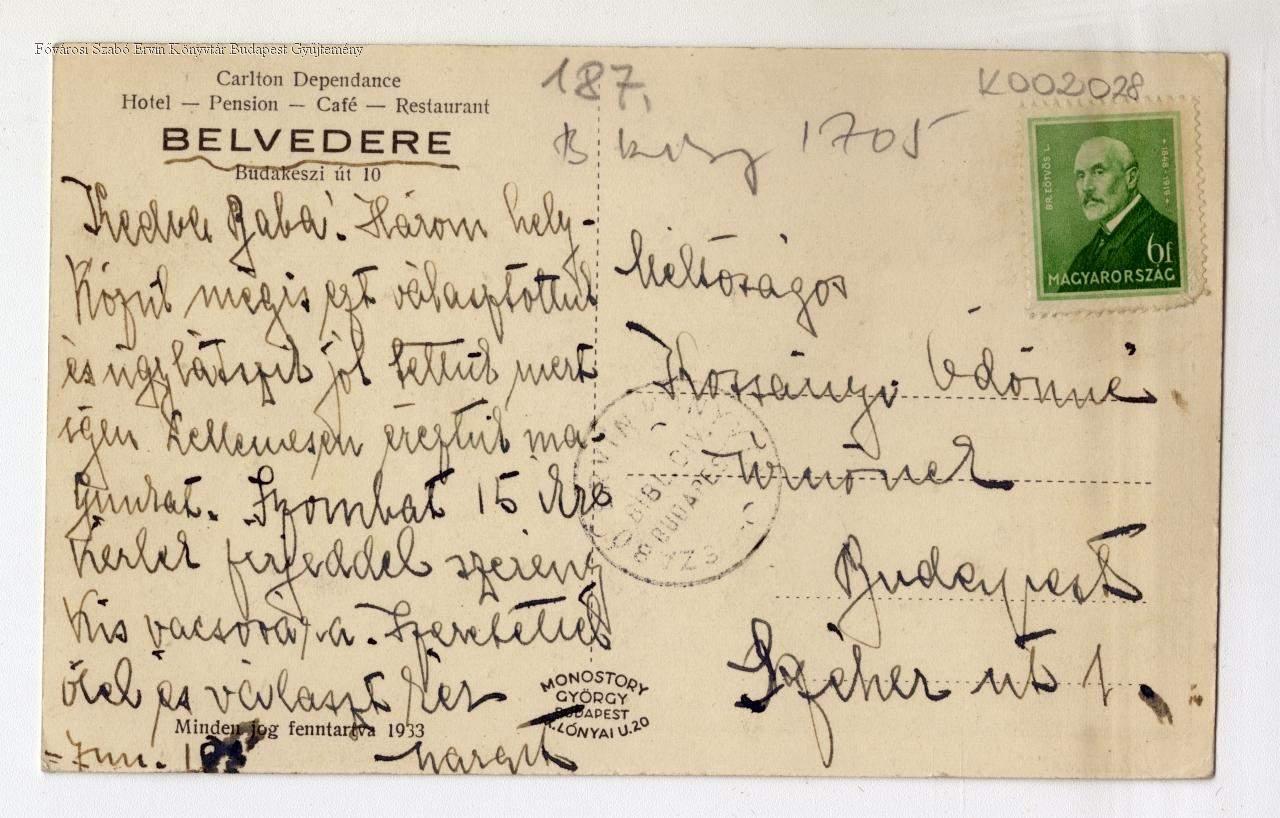 Fővárosi Szabó Ervin Könyvtár Budapest Gyűjtemény
Carlton Dependance
Hotel — Pension — Café — Restaurant
BELVEDERE
Budakeszi út 10
187,
B 1705
K002028
BR. EÖTVÖS L.
1848-1919
6f
MAGYARORSZÁG
Kedves Baba! Három hely-
közül mégis ezt választottuk
és úgylátszik jól tettük mert
igen kellemesen érezzük ma-
gunkat. Szombat 15 ikre
kérlek férjeddel szerény
kis vacsorára. Szeretettel
ölel és választ kér
Jun. 
Margit
Méltóságos
Kossányi Ödönné
Úrnőnek
Budapest
Szeher út 1.
Minden jog fenntartva 1933
MONOSTORY
GYÖRGY
BUDAPEST
LÓNYAI U. 20
BUDAPEST